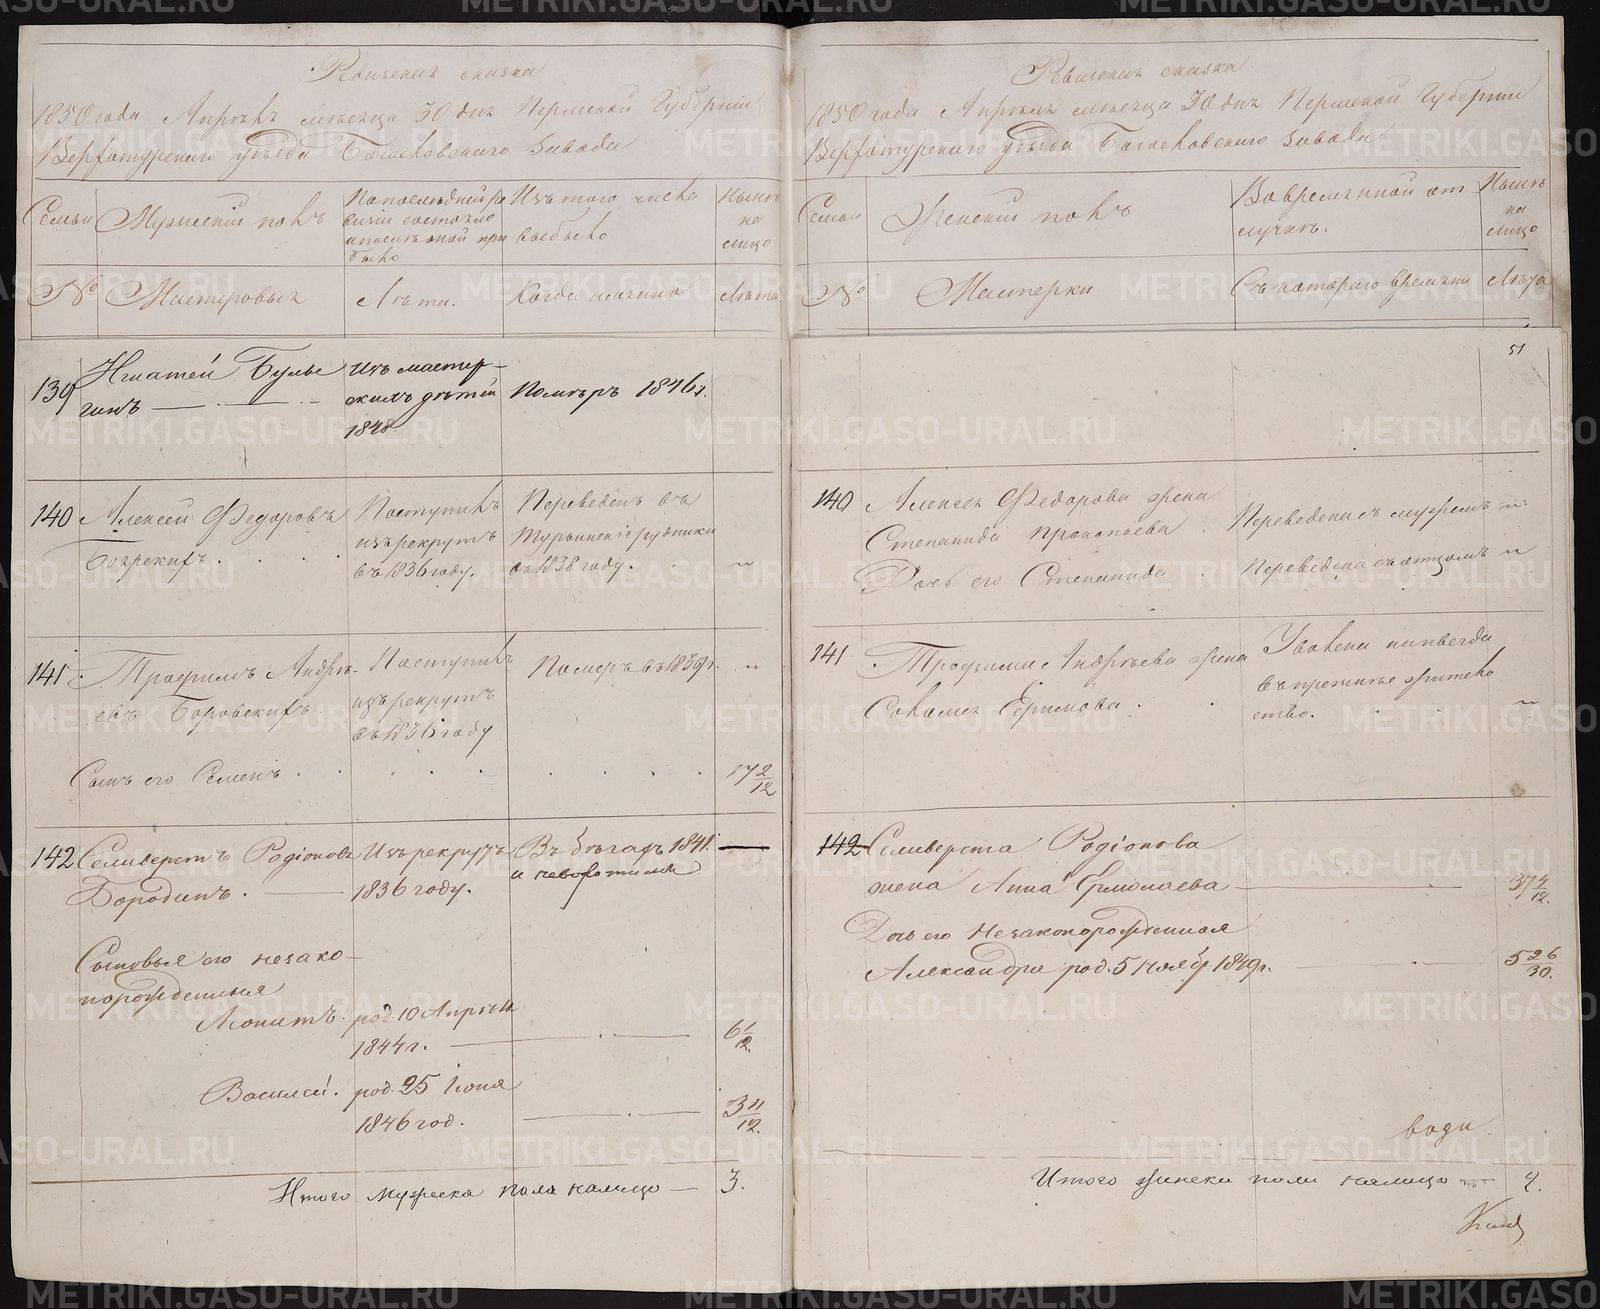 Ревизская сказка
1850 года Апрѣля мѣсяца 30 дня Пермской Губернiи
Верхотурскаго уѣзда Богословскаго завода
Семьи
Мужескiй полъ
По последней ре
визiи состояло
и послѣ оной при
было
Изъ того числа
выбыло
Нынѣ
на
лицо
№
Мастеровыя
Лѣта.
Когда имянно
Лѣта
139
Игнатей Булы
гинъ
Изъ мастер-
скихъ дѣтей
1848
Помѣръ 1846 г.
140
Алексей Федоровъ
Боярскихъ
Поступилъ
изъ рекрутъ
въ 1836 году.
Переведенъ въ
Турьинскiе рудники
въ 1838 году.
"
141
Трофимъ Андрѣ-
евъ Боровскихъ
Поступилъ
изъ рекрутъ
въ 1836 году
Померъ въ 1839 г.
"
Сынъ его Семенъ
17 2/12
142
Селиверстъ Родiоновъ
Бородинъ.
Изъ рекрутъ
1836 году.
Въ бѣгахъ 1841.
и невозтился
Сыновья его незако-
норожденныя
Леонитъ. род. 10 Апрѣля
1844 г.
6 1/12.
Василей. род. 25 Iюня
1846 год.
3 11/12.
Итого мужеска пола налицо — 3.
Ревизская сказка
1850 года Апрѣля мѣсяца 30 дня Пермской Губернiи
Верхотурскаго уѣзда Богословскаго завода
Семьи
Женскiй полъ
Во временной от
лучкѣ.
Нынѣ
на
лицо
№
Мастерки
Съ котораго времени
Лѣта
51
140
Алексея Федорова жена
Степанида Прокопьева
Переведена съ мужемъ "
Дочь его Степанида
Переведена съ отцомъ "
141
Трофима Андрѣева жена
Соломея Ефимова.
Уволена навсегда
въ прежнѣе жителѣ
ство.
"
142
Селиверста Родiонова
жена Анна Ермолаева
37 4/12.
Дочь его Незаконорожденная
Александра род. 5 Ноябр. 1849 г.
5 26/30.
Итого женска пола налицо — 2.
METRIKI.GASO-URAL.RU